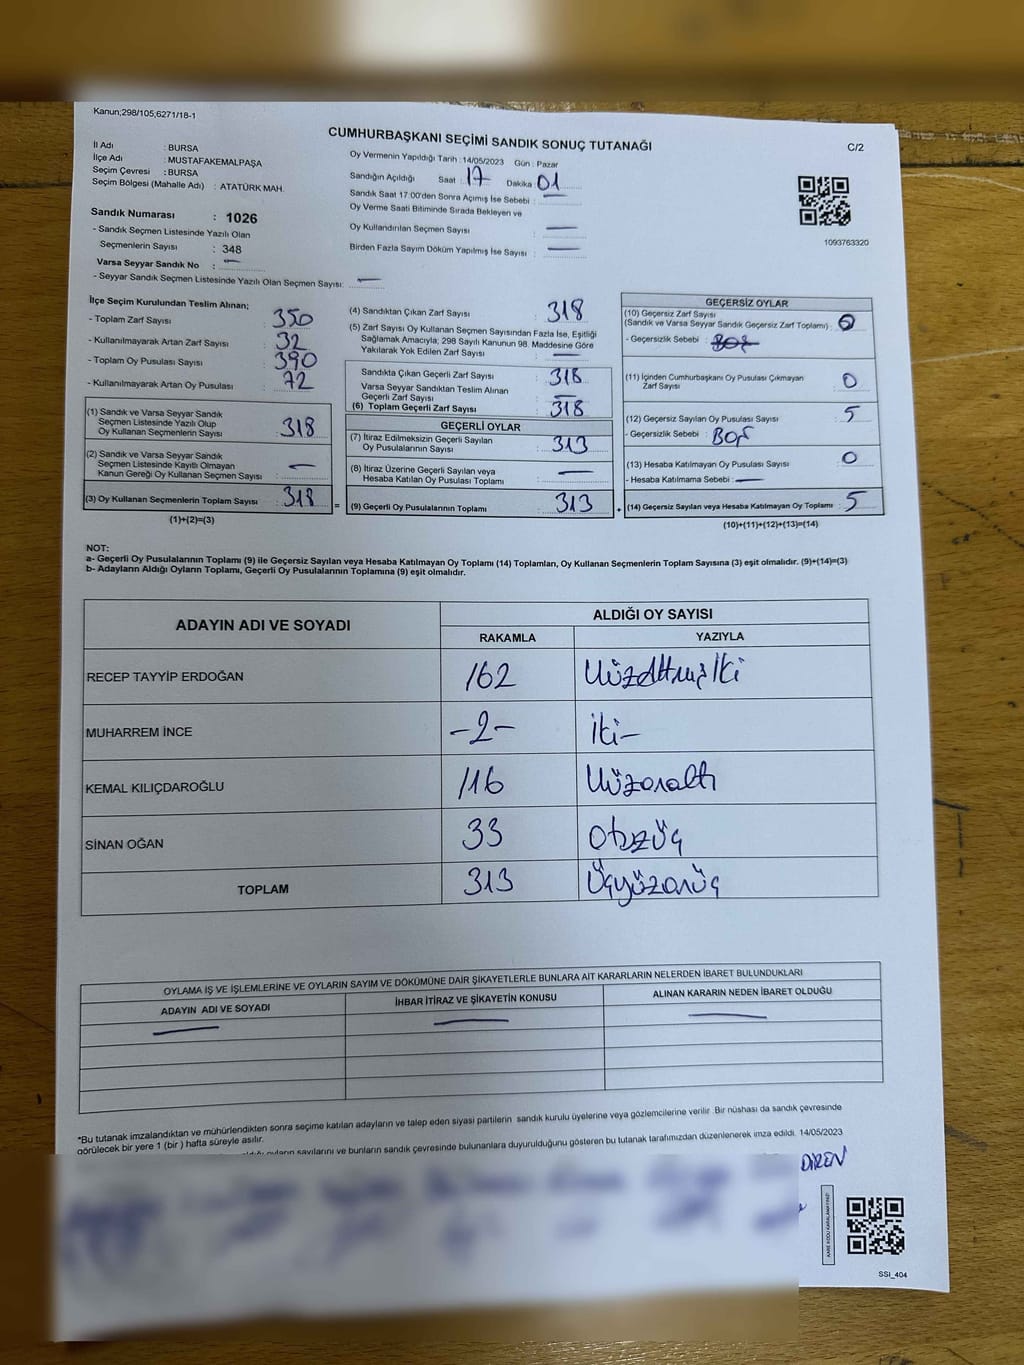 Kanun;298/105;6271/18-1
CUMHURBAŞKANI SEÇİMİ SANDIK SONUÇ TUTANAĞI
C/2
İl Adı : BURSA
İlçe Adı : MUSTAFAKEMALPAŞA
Seçim Çevresi : BURSA
Seçim Bölgesi (Mahalle Adı) : ATATÜRK MAH.
Oy Vermenin Yapıldığı Tarih : 14/05/2023 Gün : Pazar
Sandığın Açıldığı Saat : 17 Dakika : 01
Sandık Saat 17:00'den Sonra Açımış İse Sebebi : —
Oy Verme Saati Bitiminde Sırada Bekleyen ve
Oy Kullandırılan Seçmen Sayısı : —
Birden Fazla Sayım Döküm Yapılmış İse Sayısı : —
1093763320
Sandık Numarası : 1026
- Sandık Seçmen Listesinde Yazılı Olan
Seçmenlerin Sayısı : 348
Varsa Seyyar Sandık No : —
- Seyyar Sandık Seçmen Listesinde Yazılı Olan Seçmen Sayısı: —
İlçe Seçim Kurulundan Teslim Alınan;
- Toplam Zarf Sayısı : 350
- Kullanılmayarak Artan Zarf Sayısı : 32
- Toplam Oy Pusulası Sayısı : 390
- Kullanılmayarak Artan Oy Pusulası : 72
(1) Sandık ve Varsa Seyyar Sandık
Seçmen Listesinde Yazılı Olup
Oy Kullanan Seçmenlerin Sayısı : 318
(2) Sandık ve Varsa Seyyar Sandık
Seçmen Listesinde Kayıtlı Olmayan
Kanun Gereği Oy Kullanan Seçmen Sayısı : —
(3) Oy Kullanan Seçmenlerin Toplam Sayısı : 318 =
(1)+(2)=(3)
(4) Sandıktan Çıkan Zarf Sayısı : 318
(5) Zarf Sayısı Oy Kullanan Seçmen Sayısından Fazla İse, Eşitliği
Sağlamak Amacıyla; 298 Sayılı Kanunun 98. Maddesine Göre
Yakılarak Yok Edilen Zarf Sayısı : —
Sandıkta Çıkan Geçerli Zarf Sayısı : 318
Varsa Seyyar Sandıktan Teslim Alınan
Geçerli Zarf Sayısı : —
(6) Toplam Geçerli Zarf Sayısı : 318
GEÇERLİ OYLAR
(7) İtiraz Edilmeksizin Geçerli Sayılan
Oy Pusulalarının Sayısı : 313
(8) İtiraz Üzerine Geçerli Sayılan veya
Hesaba Katılan Oy Pusulası Toplamı : —
(9) Geçerli Oy Pusulalarının Toplamı : 313 +
GEÇERSİZ OYLAR
(10) Geçersiz Zarf Sayısı
(Sandık ve Varsa Seyyar Sandık Geçersiz Zarf Toplamı) : 0
- Geçersizlik Sebebi : BOŞ
(11) İçinden Cumhurbaşkanı Oy Pusulası Çıkmayan
Zarf Sayısı : 0
(12) Geçersiz Sayılan Oy Pusulası Sayısı : 5
- Geçersizlik Sebebi : BOŞ
(13) Hesaba Katılmayan Oy Pusulası Sayısı : 0
- Hesaba Katılmama Sebebi : —
(14) Geçersiz Sayılan veya Hesaba Katılmayan Oy Toplamı : 5
(10)+(11)+(12)+(13)=(14)
NOT:
a- Geçerli Oy Pusulalarının Toplamı (9) ile Geçersiz Sayılan veya Hesaba Katılmayan Oy Toplamı (14) Toplamları, Oy Kullanan Seçmenlerin Toplam Sayısına (3) eşit olmalıdır. (9)+(14)=(3)
b- Adayların Aldığı Oyların Toplamı, Geçerli Oy Pusulalarının Toplamına (9) eşit olmalıdır.
ADAYIN ADI VE SOYADI
ALDIĞI OY SAYISI
RAKAMLA YAZIYLA
RECEP TAYYİP ERDOĞAN 162 Yüzaltmışİki
MUHARREM İNCE -2- İki-
KEMAL KILIÇDAROĞLU 116 Yüzonaltı
SİNAN OĞAN 33 Otuzüç
TOPLAM 313 Üçyüzonüç
OYLAMA İŞ VE İŞLEMLERİNE VE OYLARIN SAYIM VE DÖKÜMÜNE DAİR ŞİKAYETLERLE BUNLARA AİT KARARLARIN NELERDEN İBARET BULUNDUKLARI
ADAYIN ADI VE SOYADI İHBAR İTİRAZ VE ŞİKAYETİN KONUSU ALINAN KARARIN NEDEN İBARET OLDUĞU
— — —
*Bu tutanak imzalandıktan ve mühürlendikten sonra seçime katılan adayların ve talep eden siyasi partilerin sandık kurulu üyelerine veya gözlemcilerine verilir .Bir nüshası da sandık çevresinde
görülecek bir yere 1 (bir ) hafta süreyle asılır.
oyların sayılarını ve bunların sandık çevresinde bulunanlara duyurulduğunu gösteren bu tutanak tarafımızdan düzenlenerek imza edildi. 14/05/2023
DİREN
KARE KODU KARALAMAYINIZ!
SSİ_404